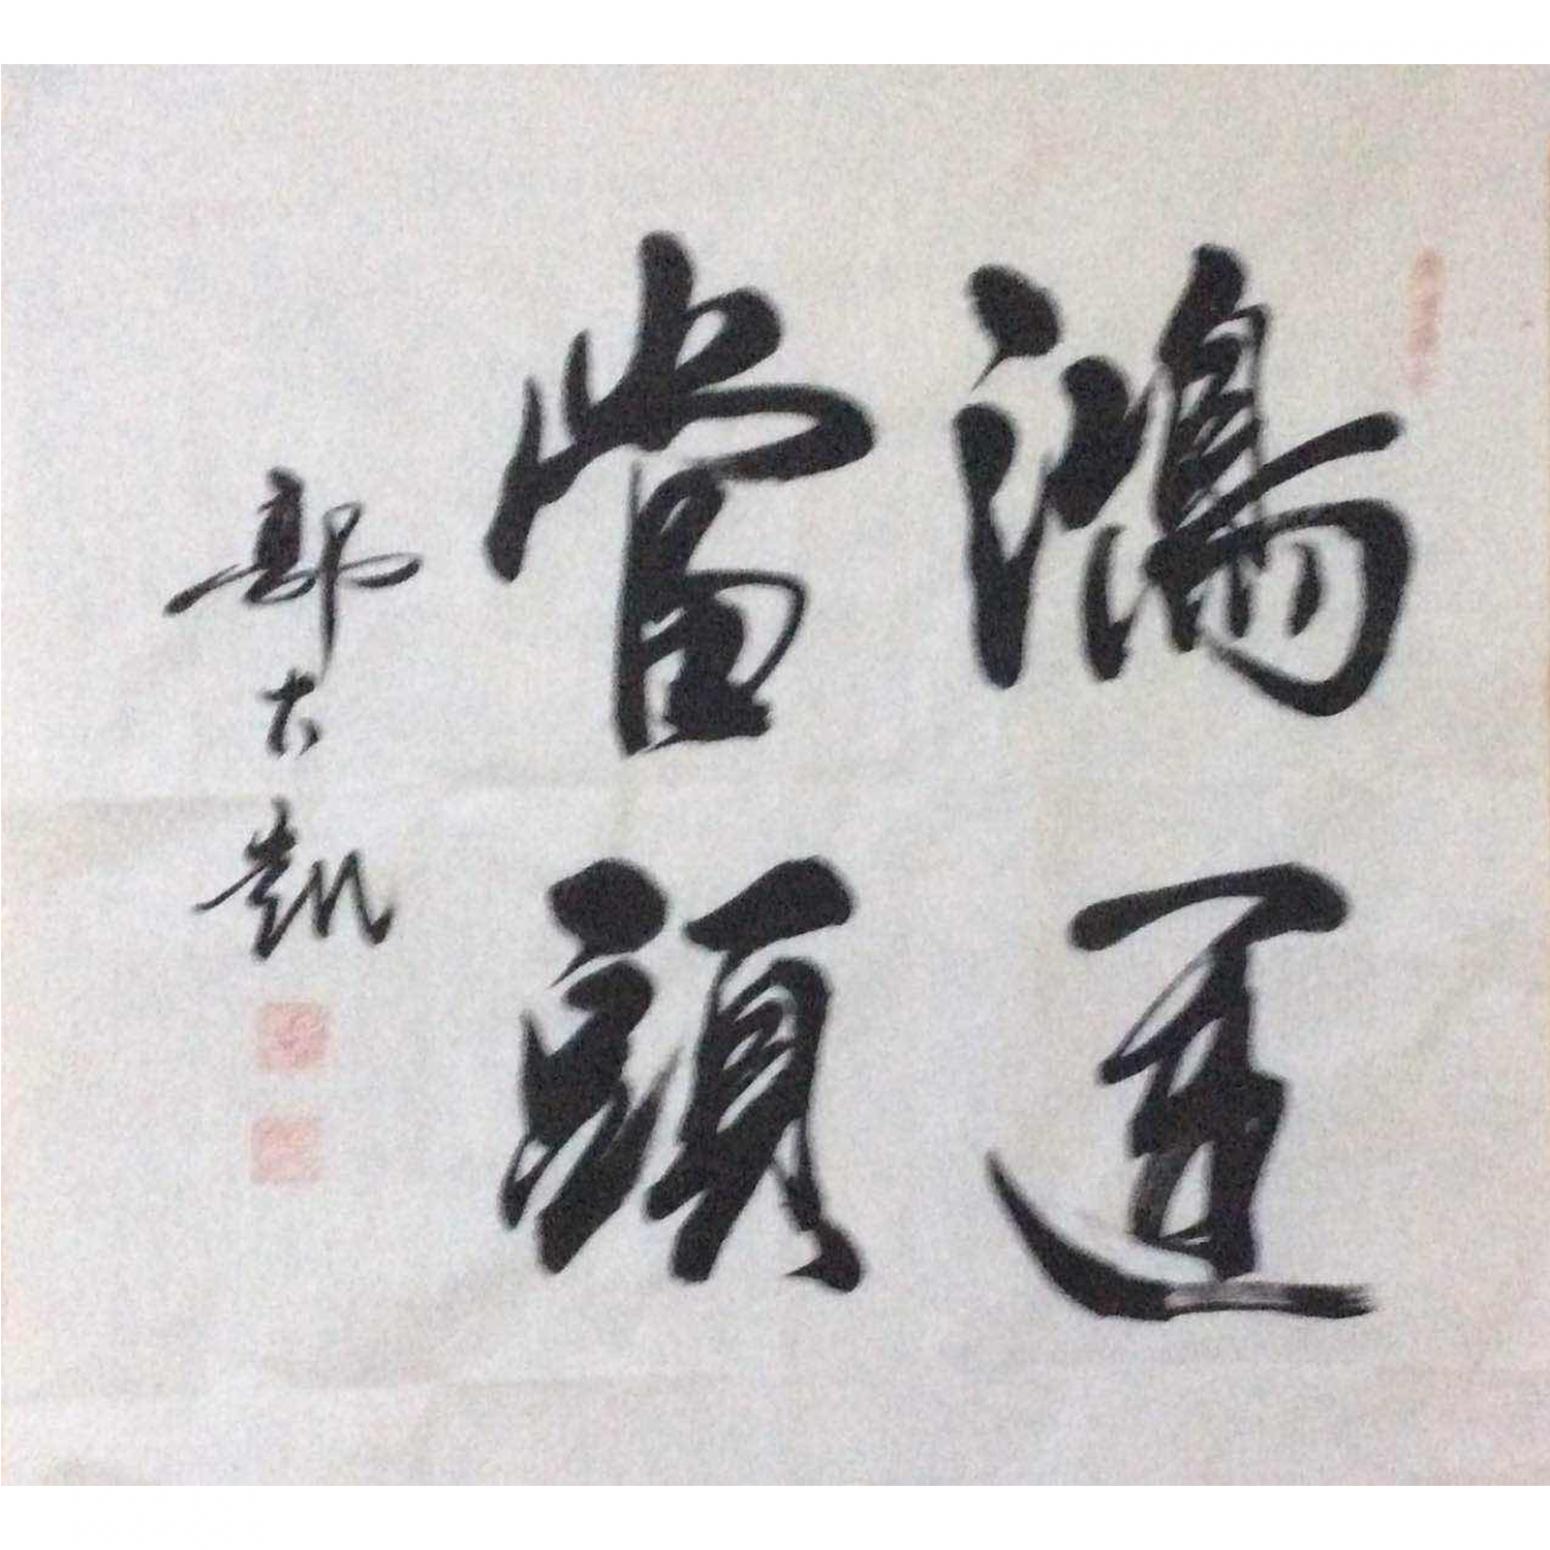 鴻運
當頭
郭大凱